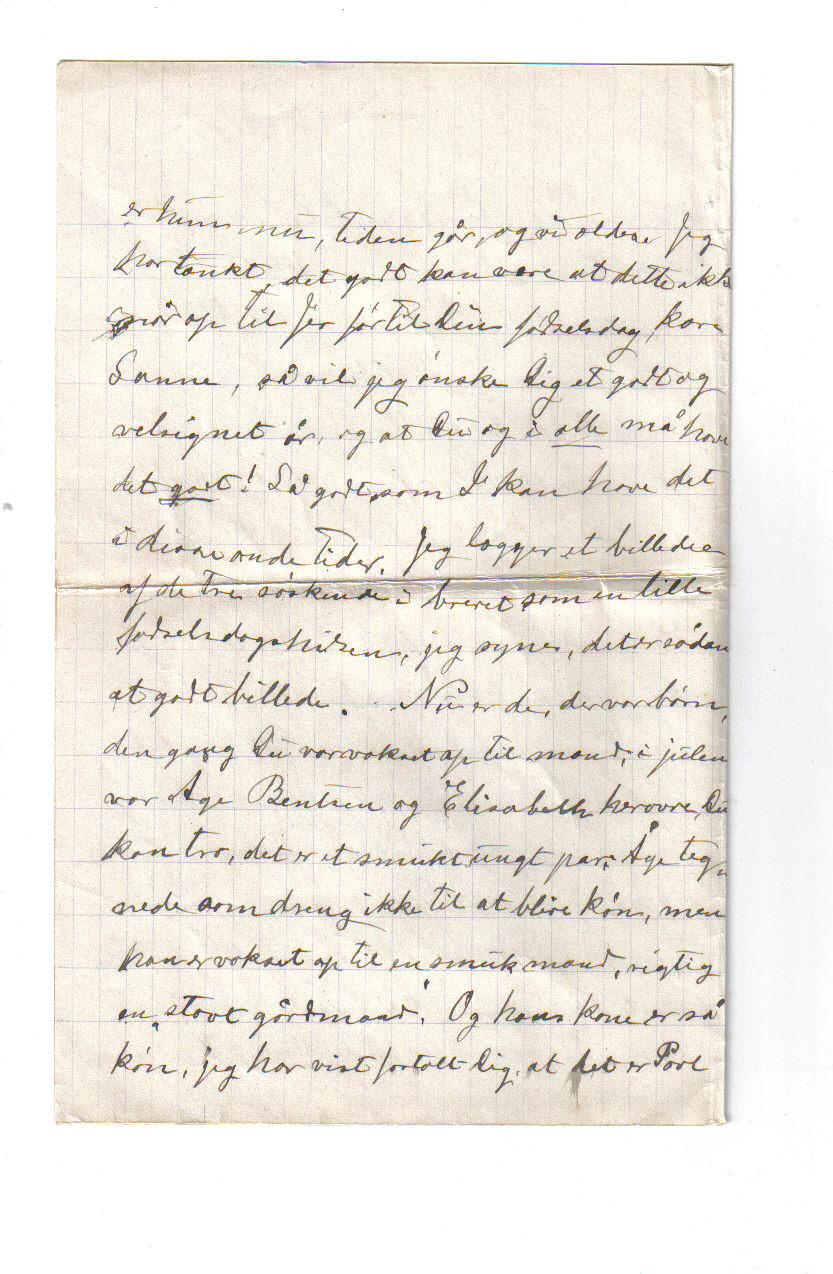 er hun nu, tiden går, og vi ældes. Jeg
har tænkt, det godt kan være at dette ikk
når op til Jer før til Din fødselsdag, kære
Sanne, så vil jeg ønske Dig et godt og
velsignet år, og at Du og i alle må have
det godt! Så godt, som I kan have det
i disse onde tider. Jeg lægger et billede
af de tre søskende i brevet som en lille
fødselsdagshilsen, jeg synes, det er sådan
et godt billede. Nu er de, der var børn,
den gang Du var vokset op til mand, i julen
var Åge Bentsen og Elisabeth herovre, Du
kan tro, det er et smukt ungt par, Åge teg-
nede som dreng ikke til at blive køn, men
han er vokset op til en smuk mand, rigtig
en "stovt gårdmand". Og hans kone er så
køn, jeg har vist fortalt Dig, at det er Povl